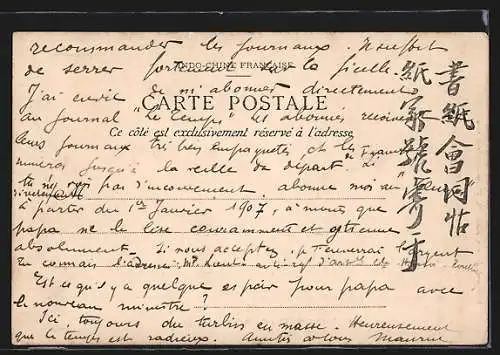 recommander les journaux. Il suffit
de serrer fortement la ficelle.
INDO-CHINE FRANÇAISE
J'ai envie de m'abonner directement
CARTE POSTALE
au journal "Le Temps" les abonnés reçoivent
Ce côté est exclusivement réservé à l'adresse
leurs journaux très bien empaquetés et les
numéros jusqu'à la veille du départ. Si
tu ne vois pas d'inconvénient, abonne moi au
à partir du 1er Janvier 1907, à moins que
papa ne le lise couramment et y tienne
absolument. Si nous acceptez, je l'argent
Tu connais l'adresse: Mr. Lieut.
Est ce qu'il y a quelque espoir pour papa avec
le nouveau ministre?
Ici, toujours du turbin en masse. Heureusement
que le temps est radieux. Amitiés à tous Maurice
書紙會同帖
紙家號寄手